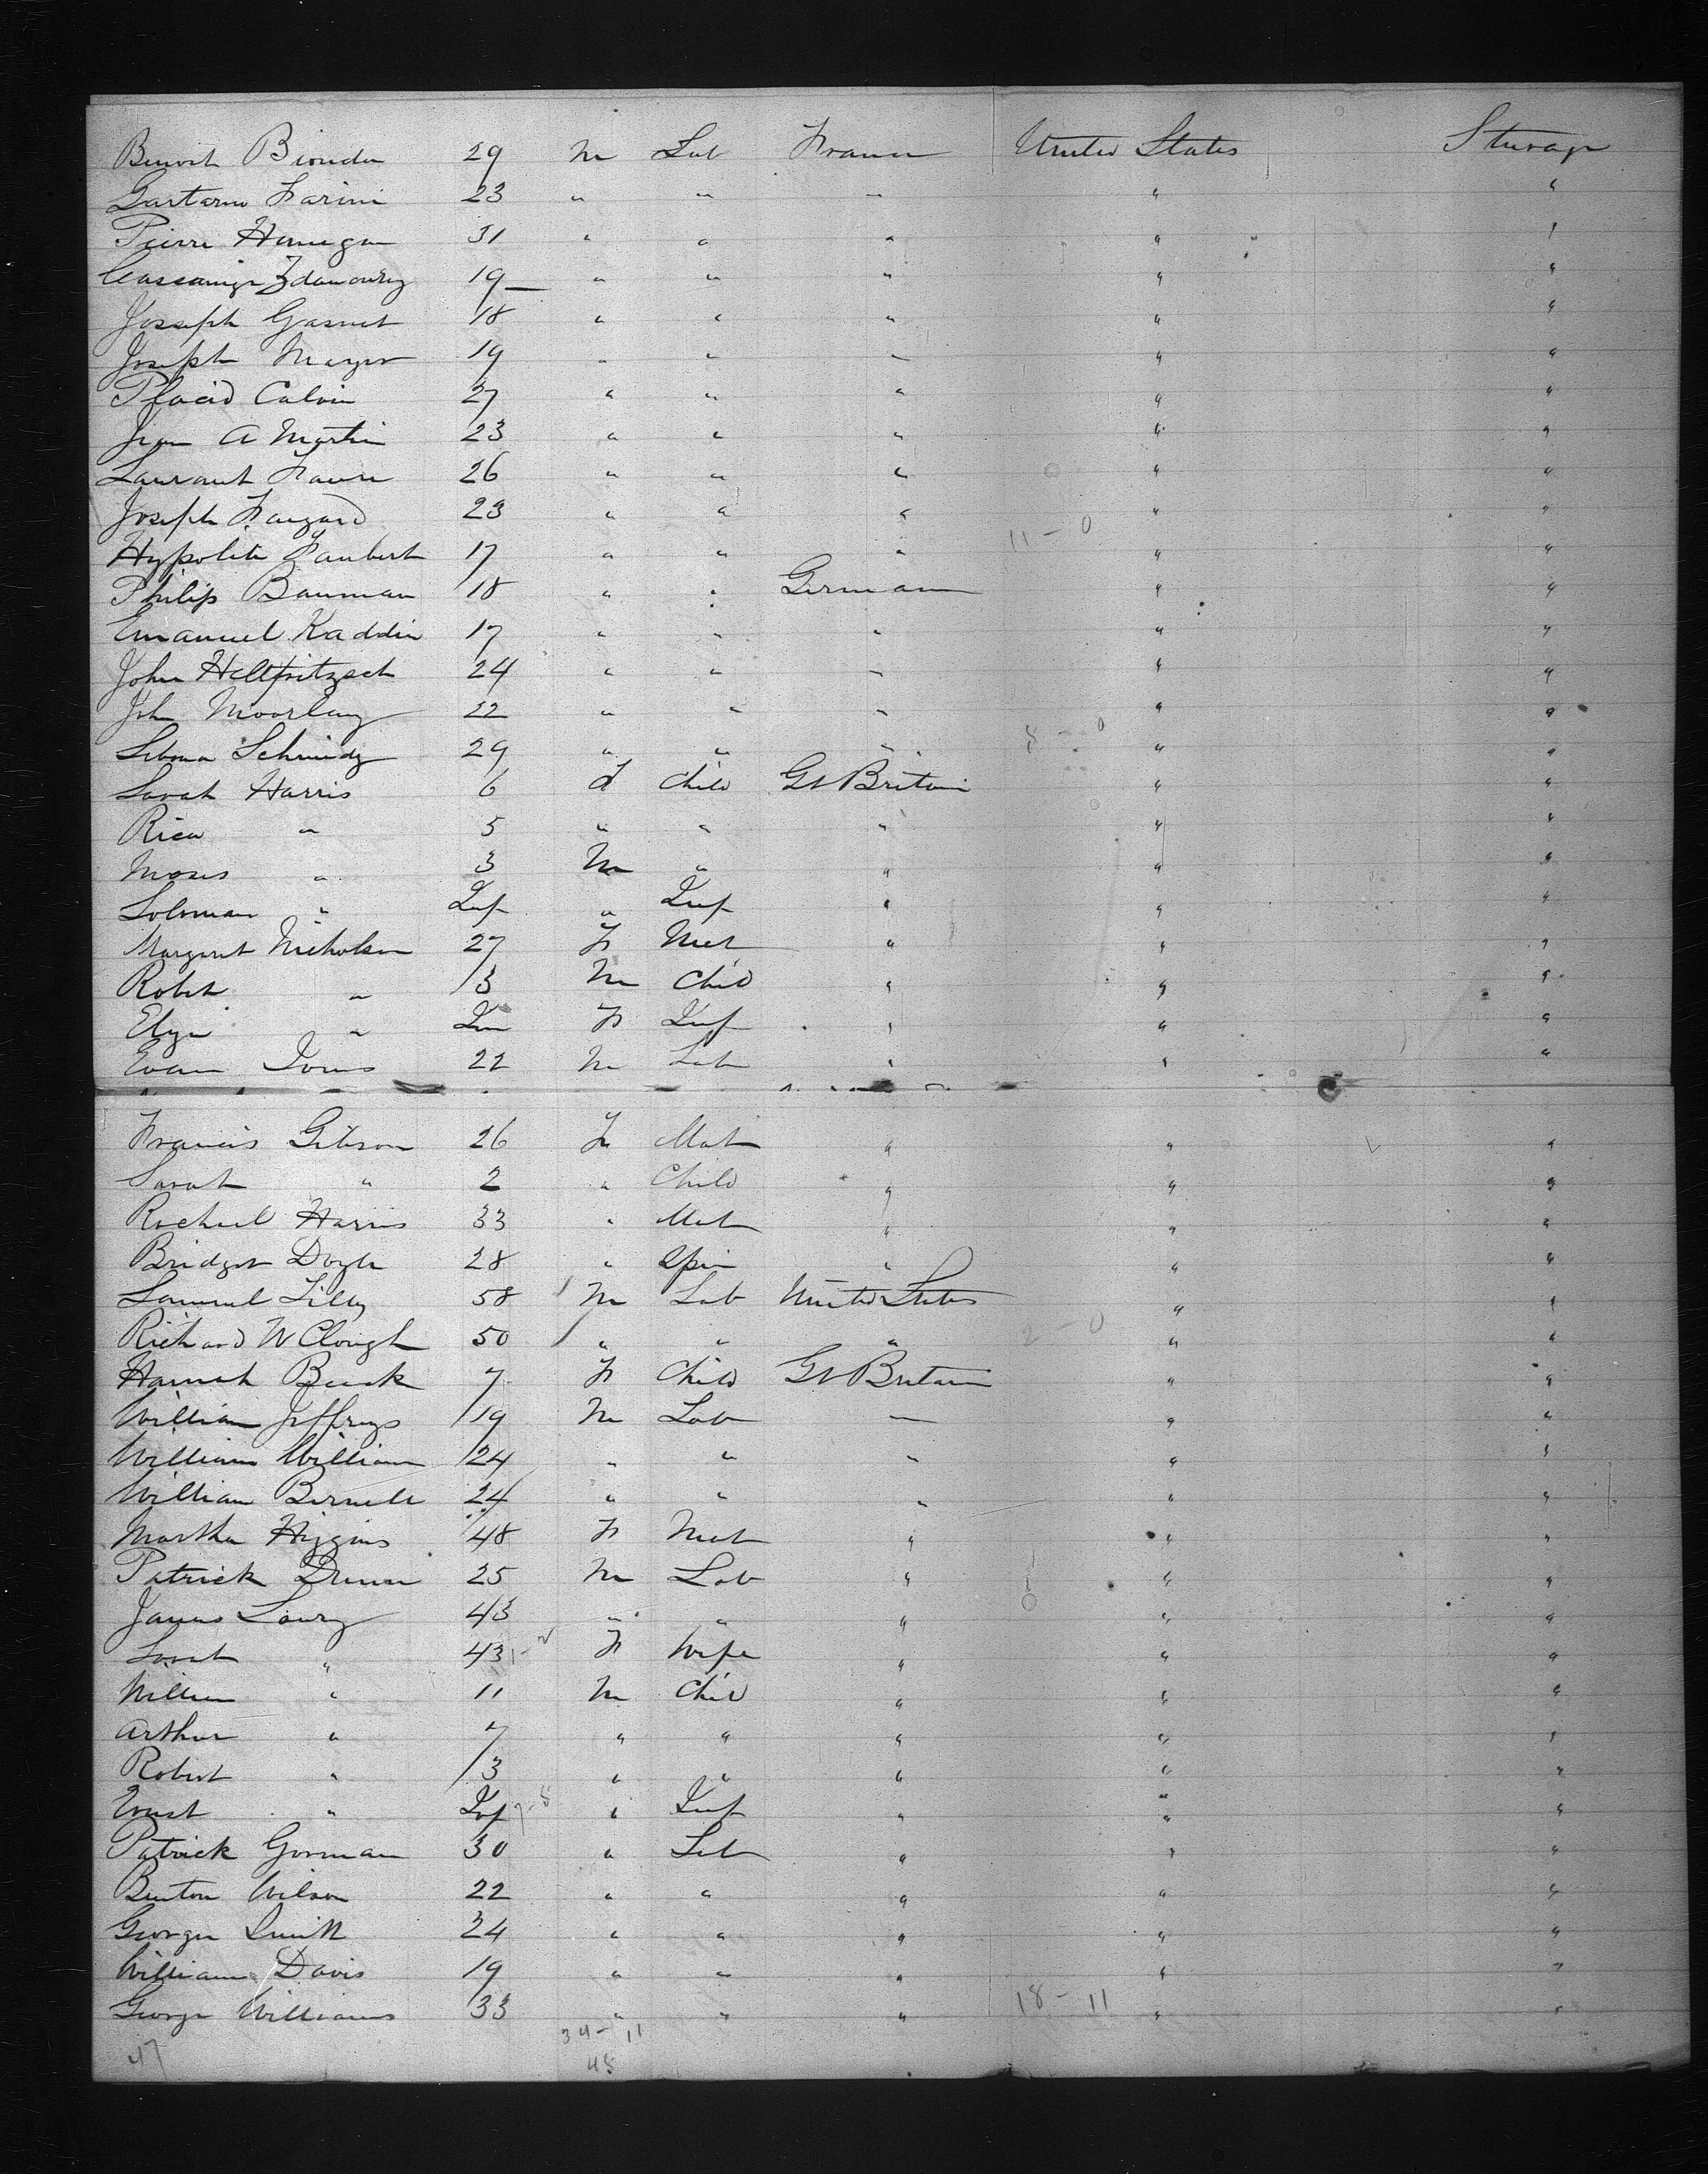 Benoit Bionda 29 M Lab France United States Steerage
Gaetano Farini 23 " " " " "
Pierre Hanegan 31 " " " " "
Zdanowig 19 " " " " "
Joseph Gasnet 18 " " " " "
Joseph Mayer 19 " " " " "
Placid Calvin 27 " " " " "
Jean A Martin 23 " " " " "
Laurant Faure 26 " " " " "
Joseph Faugard 23 " " " " "
11 - 0
Hypolite Jaubert 17 " " " " "
Philip Bauman 18 " " German " "
Emanuel Kaddin 17 " " " " "
John Hellfritzsch 24 " " " " "
John Moorlang 22 " " " " "
5 - 0
Schmidz 29 " " " " "
Sarah Harris 6 F Child Gt Britain " "
Rica " 5 " " " " "
Moses " 3 M " " " "
Soloman " Inf " Inf " " "
Margaret Nicholson 27 F Mat " " "
Robt " 3 M Child " " "
Elyn " Inf F Inf " " "
Evan Jones 22 M Lab " " "
Francis Gibson 26 F Mat " " "
Sarah " 2 " Child " " "
Rachael Harris 33 " Mat " " "
Bridget Doyle 28 " Spin " " "
Samuel Lilly 58 M Lab United States " "
2 - 0
Richard W Clough 50 " " " " "
Hannah Beck 7 F Child Gt Britain " "
William Jeffreys 19 M Lab " " "
William William 24 " " " " "
William Birnell 24 " " " " "
Martha Higgins 48 F Mat " " "
Patrick Dunn 25 M Lab " " "
James Lowry 43 " " " " "
Sarah " 43 F Wife " " "
William " 11 M Child " " "
Arthur " 7 " " " " "
Robert " 3 " " " " "
Ernest " Inf " Inf " " "
Patrick Gorman 30 " Lab " " "
Benton Wilson 22 " " " " "
George Smith 24 " " " " "
William Davis 19 " " " " "
18 - 11
George Williams 33 " " " " "
34 - 11
47 45